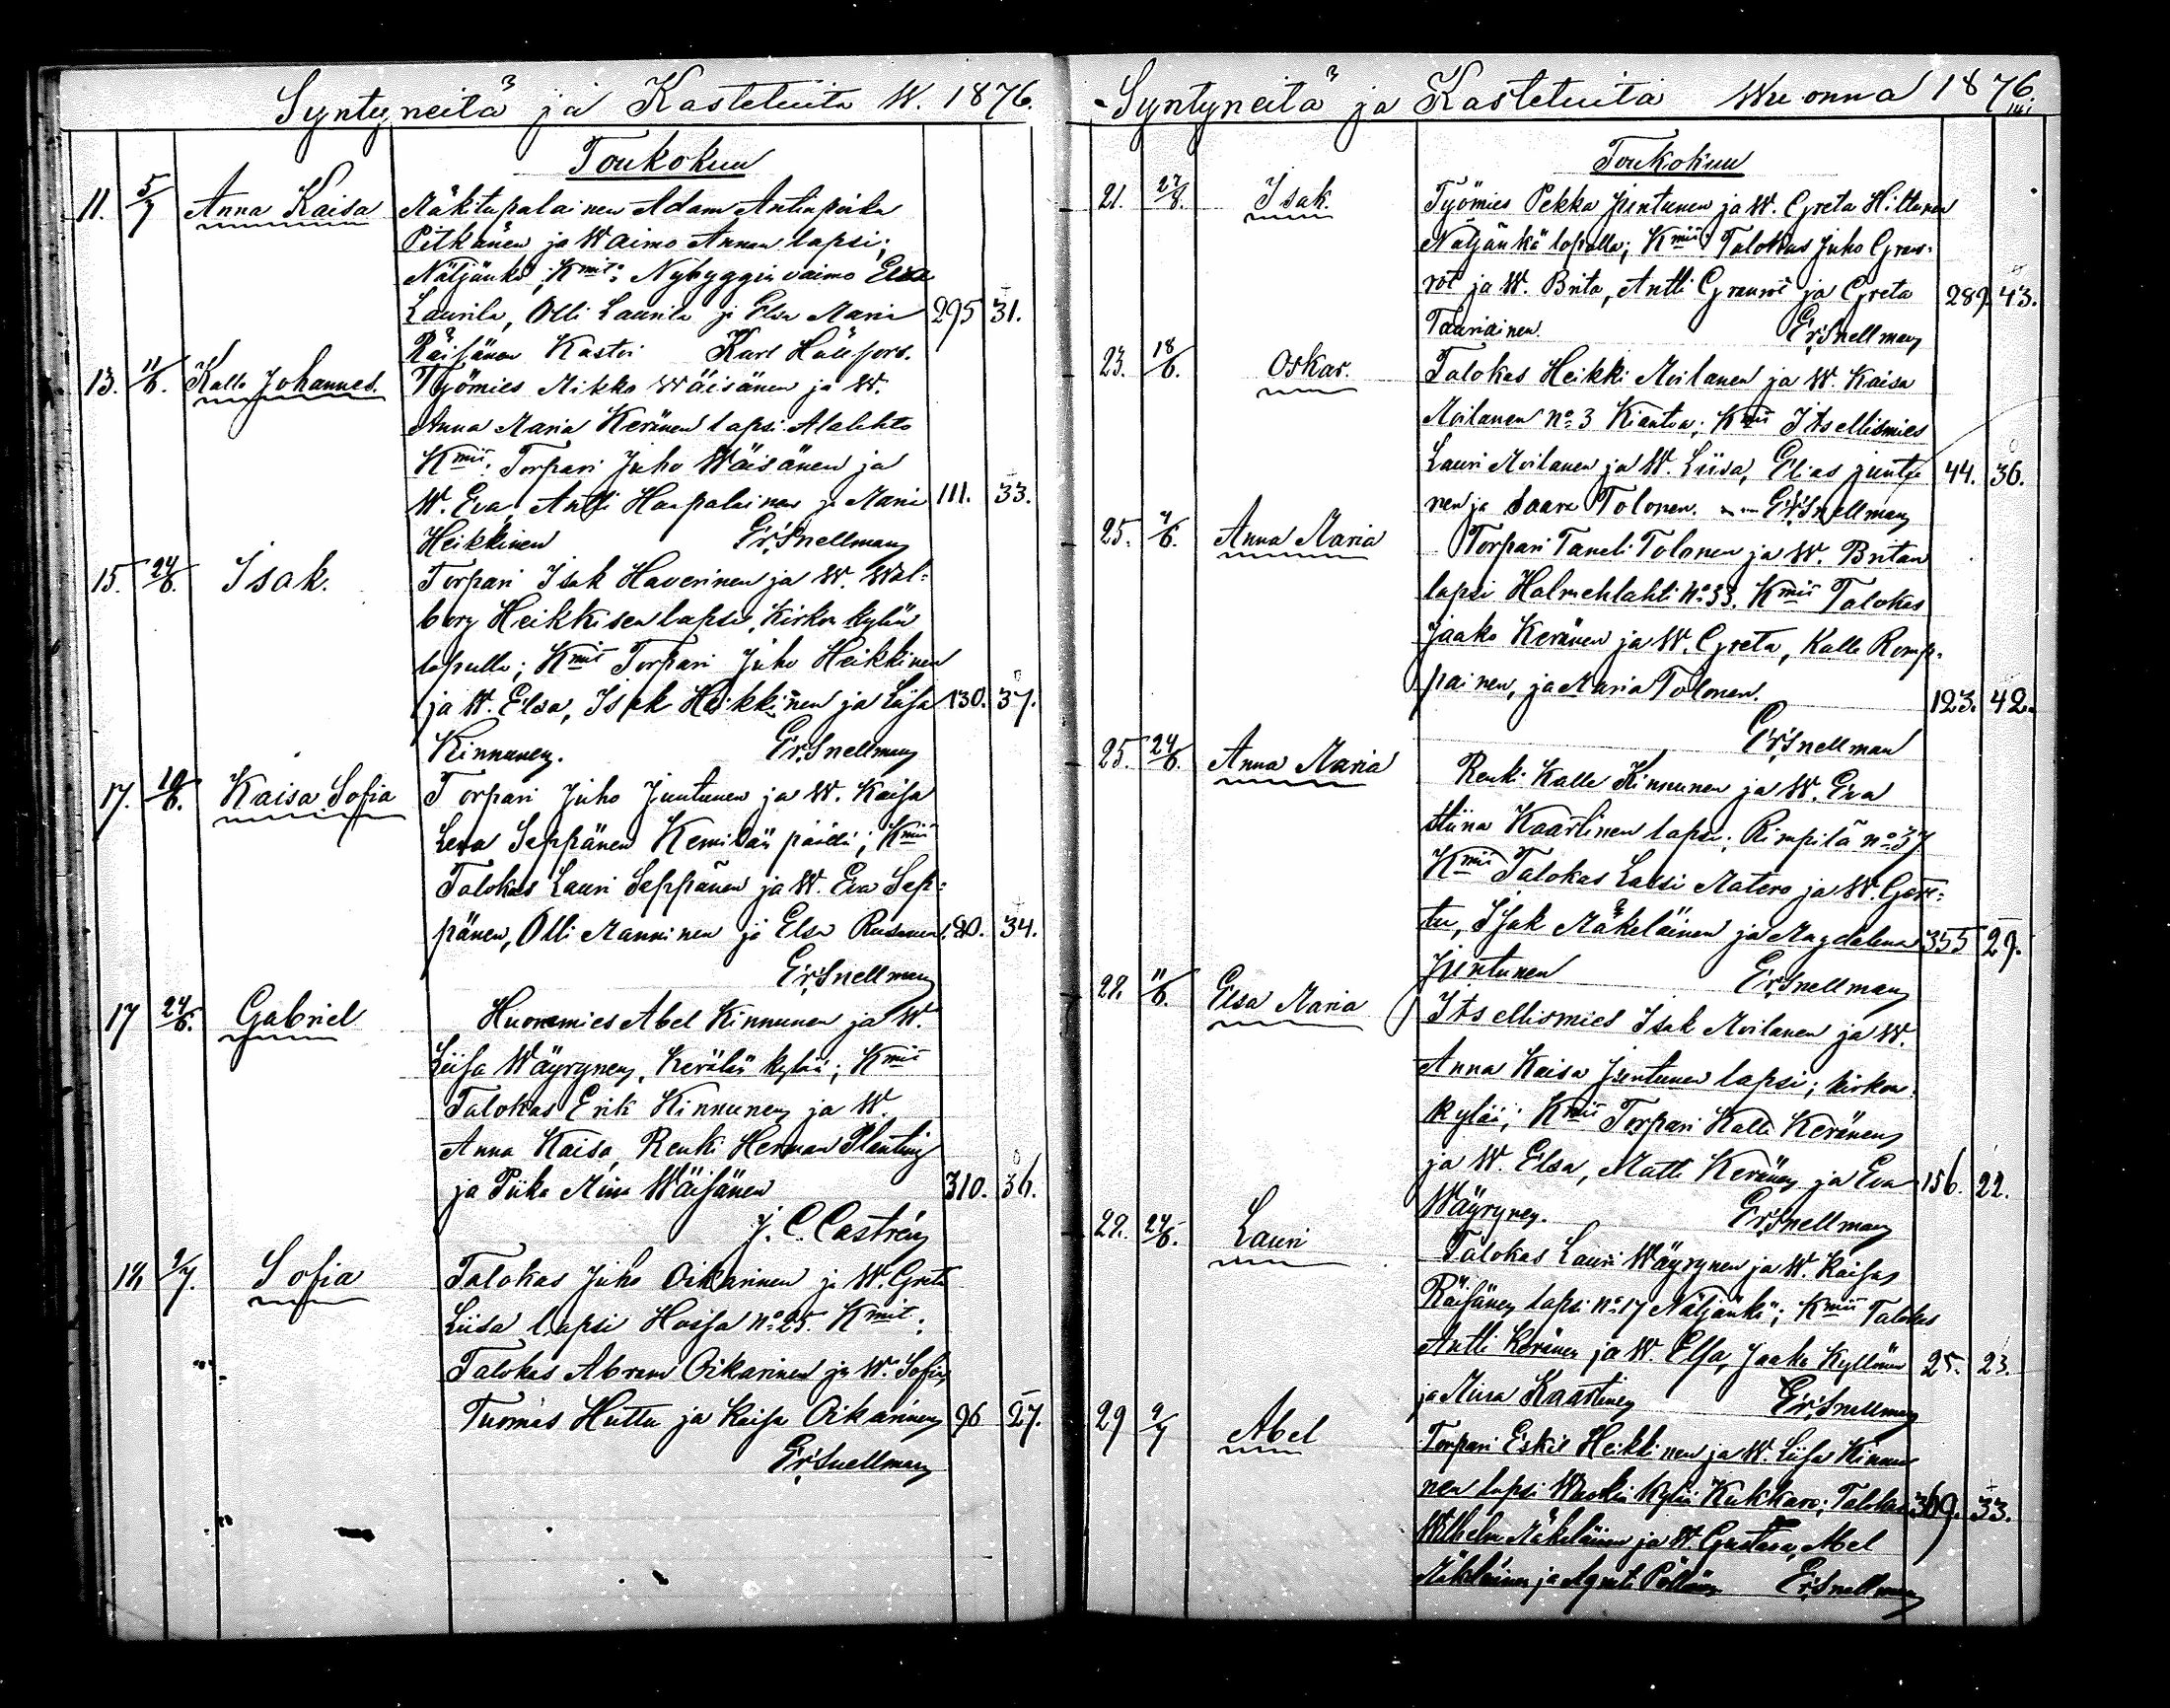 Syntyneitä ja Kastetuita W. 1876.
Toukokuu
11. 5/7 Anna Kaisa Mäkitupalainen Adam Antinpoika
Pitkänen ja Waimo Annan lapsi;
Näljänkö; Kmit: Nybyggin vaimo Elsa
Laurila, Olli Laurila ja Elsa Maria 295 31.
Räisänen Kastoi Karl Hällfors.
13. 11/6. Kalle Johannes. Työmies Mikko Wäisänen ja W.
Anna Maria Keränen lapsi Alalehto
Kmii. Torpari Juho Wäisänen ja
W. Eva, Antti Haapalainen ja Maria 111. 33.
Heikkinen E. W. Snellman
15. 24/6. Isak. Torpari Isak Haverinen ja W. Wal=
borg Heikkisen lapsi, Kirkon kylän
lopulla; Kmit Torpari Juho Heikkinen
ja W. Elsa, Isak Heikkinen ja Liisa 130. 37.
Kinnunen. E. W. Snellman
17. 18/6. Kaisa Sofia Torpari Juho Juntunen ja W. Kaisa
Leena Seppänen Kemilän päällä; Kmii
Talokas Lauri Seppänen ja W. Eva Sep=
pänen, Olli Manninen ja Elsa 80. 34.
E. W. Snellman
17 24/6. Gabriel Huonemies Abel Kinnunen ja W.
Liisa Wäyrynen, Kerälän kylää; Kmii
Talokas Erik Kinnunen ja W.
Anna Kaisa, Renki Herman Planting
ja Piika Miina Wäisänen 310. 36.
J. C. Castrén
18 2/7. Sofia Talokas Juho Oikarinen ja W. Greta
Liisa lapsi Hossa No 25. Kmit:
Talokas Abram Oikarinen ja W. Sofia,
Tuomas Huttu ja Kaisa Oikarinen 96 27.
E. W. Snellman
Syntyneitä ja Kastetuita Wuonna 1876.
Toukokuu
21. 27/8. Isak. Työmies Pekka Juntunen ja W. Greta Hiltunen
Näljänkä lopulla; Kmii: Talokas Juho Graus=
röt ja W. Brita, Antti Grausröt ja Greta 289. 43.
Tauriainen. E. W. Snellman
23. 18/6. Oskar. Talokas Heikki Moilanen ja W. Kaisa
Moilanen No 3 Kianta; Kmii Itsellismies
Lauri Moilanen ja W. Liisa, Elias Juntu 44. 36.
nen ja Saara Tolonen. E. W. Snellman
25. 4/6. Anna Maria Torpari Taneli Tolonen ja W. Britan
lapsi Halmehlahti No 33. Kmii Talokas
Jaako Keränen ja W. Greta, Kalle Romp=
painen, ja Maria Tolonen. 123. 42.
E. W. Snellman
25. 24/6. Anna Maria Renki Kalle Kinnunen ja W. Eva
Stiina Kaartinen lapsi; Rimpilä No 37
Kmii Talokas Lassi Matero ja W. Gere=
tu, Isak Mäkeläinen ja Magdalena 355 29.
Juntunen E. W. Snellman
28. 11/6. Elsa Maria Itsellismies Isak Moilanen ja W.
Anna Kaisa Juntunen lapsi; kirkon
kylää; Kmii Torpari Kalle Keränen
ja W. Elsa, Matti Keränen ja Eva 156. 22.
Wäyrynen. E. W. Snellman
28. 24/6. Lauri Talokas Lauri Wäyrynen ja W. Kaisa
Räisänen lapsi No 17 Näljänkä; Kmii Talokas
Antti Keränen ja W. Elsa, Jaako Kyllönen 25. 23.
ja Miina Kaartinen E. W. Snellman
29 2/7 Abel Torpari Eskil Heikkinen ja W. Liisa Kinnu
nen lapsi kylää Kukkaro; Talokas 369. 33.
Wilhelm Mäkeläinen ja W. Gustava, Abel
Mäkeläinen ja E. W. Snellman